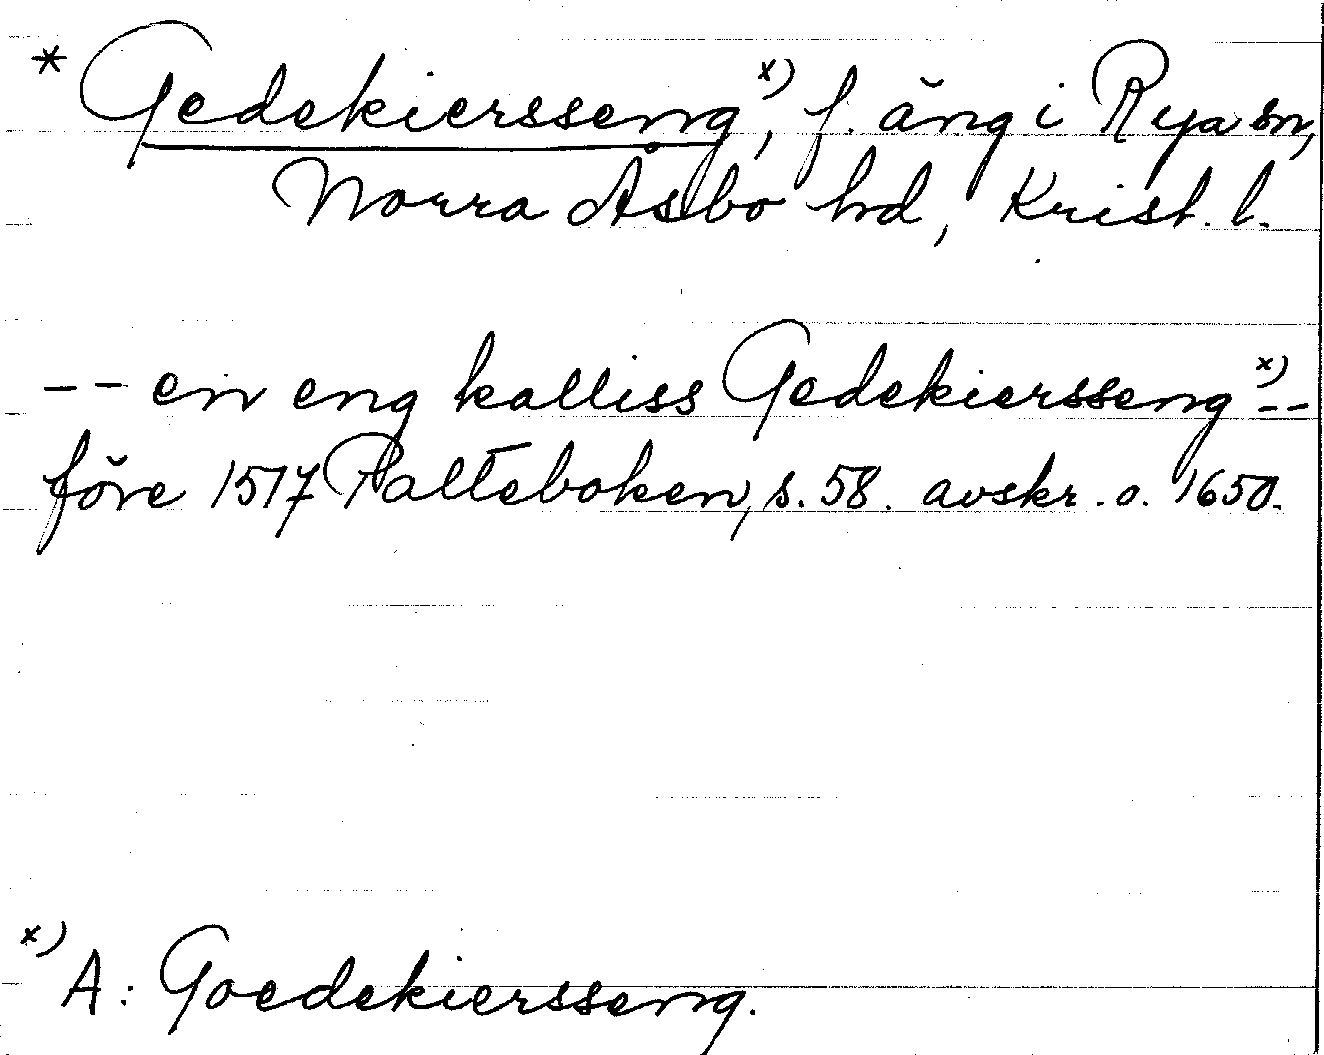 * Gedekiersseng x), f. äng i Rya sn,
Norra Åsbo hd, Krist. l.
-- en eng kalliss Gedekiersseng x) --
före 1517 Palteboken, s. 58. avskr. o. 1650.
x) A: Goedekiersseng.